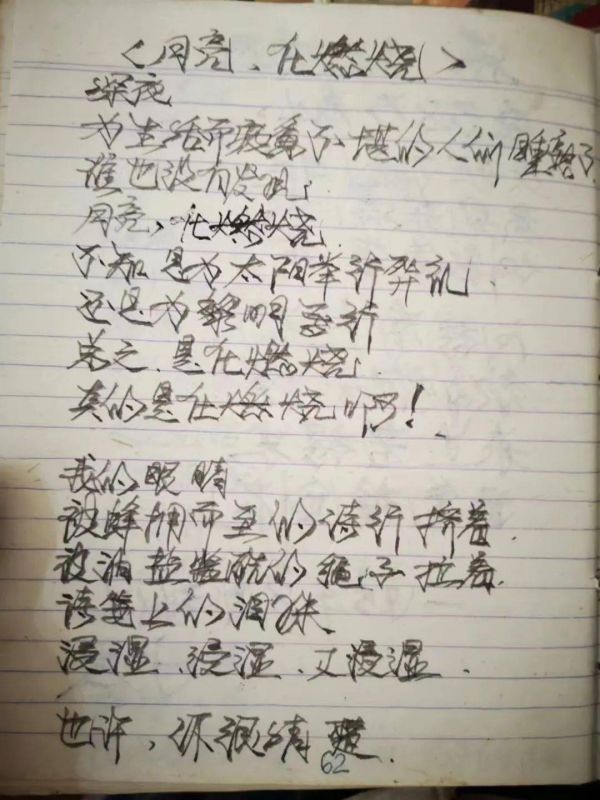 《月亮、在燃烧》
深夜
为生活而疲惫不堪的人们睡熟了.
谁也没有发现
月亮、在燃烧.
不知是为太阳举行葬礼.
还是为黎明
总之.是在燃烧.
真的是在燃烧啊!
我的眼睛
被蜂拥而至的诗行挤着.
被泪盐的绳子拉着.
诗笺上的泪珠
浸湿.浸湿.又浸湿.
也许,你很清楚.
62